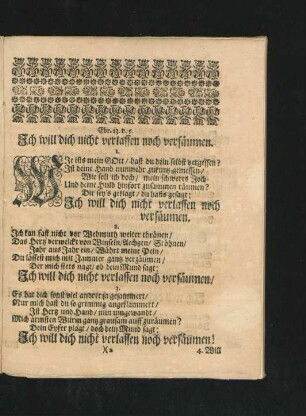 Ebr. 13. v. 5.
Ich will dich nicht verlassen noch versäumen.
1.
WJe ists mein GOtt / hast du dein selbst vergessen?
Ist deine Hand nunmehr zu kurtz gemessen /
Wie soll ich doch / mein schweres Joch
Und deine Huld hinfort zusammen räumen?
Dir sey's geklagt / du hasts gesagt:
Ich will dich nicht verlassen noch
versäumen.
2.
Ich kan fast nicht vor Wehmuth weiter thränen /
Das Hertz verweickt von Winseln / Aechzen / Stöhnen /
Jahr aus Jahr ein / Währt meine Pein /
Du lässest mich mit Jammer gantz
Der mich stets nagt / ob dein Mund sagt:
Ich will dich nicht verlassen noch versäumen /
3.
Es hat dich sonst viel anders
Nur mich hast du so grimmig angeflammert /
Ist Hertz und Hand / nun umgewandt /
Mich ärmsten Wurm gantz grausam auff zuräumen?
Dein Eyfer plagt / doch dein Mund sagt:
Ich will dich nicht verlassen noch versäumen!
X 2
4. Will